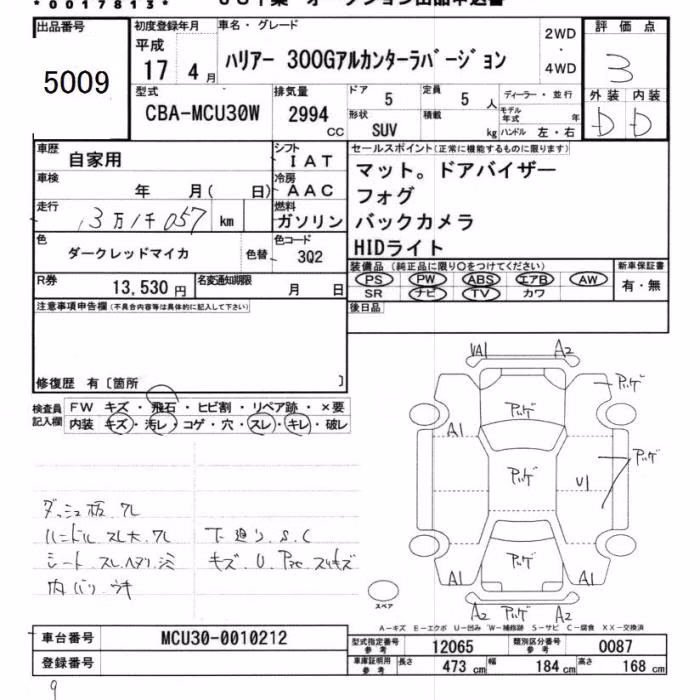 *0017813*
出品番号
5009
初度登録年月
平成
17 4 月
車名・グレード
ハリアー 300Gアルカンターラバージョン
2WD
・
4WD
評価点
3
外装 内装
D D
型式
CBA-MCU30W
排気量
2994
CC
ドア
5
定員
5 人
形状
SUV
積載
kg
ディーラー・並行
モデル年式 年
ハンドル 左・右
車歴
自家用
シフト
IAT
車検
年 月( 日)
冷房
AAC
走行
3万1千057 km
燃料
ガソリン
色
ダークレッドマイカ
色替
色コード
3Q2
R券
13,530 円
名変通知期限
月 日
セールスポイント(正常に機能するものに限ります)
マット。ドアバイザー
フォグ
バックカメラ
HIDライト
装備品(純正品に限り○をつけてください)
PS PW ABS エアB AW
SR ナビ TV カワ
新車保証書
有・無
注意事項申告欄(不具合内容等は具体的に記入して下さい)
後日品
修復歴 有〔箇所 〕
検査員
記入欄
FW キズ・飛石・ヒビ割・リペア跡・×要
内装 キズ・汚レ・コゲ・穴・スレ・キレ・破レ
ダッシュ板 クレ
ハンドル スレ大 クレ
シート スレ ヘタリ シミ
内バリ ウキ
下廻り S.C
キズ
A2
A1
U1
A1
A1
A2
A2
スペア
A-キズ E-エクボ U-凹み W-補修跡 S-サビ C-腐食 XX-交換済
車台番号
MCU30-0010212
登録番号
型式指定番号
参考
12065
類別区分番号
参考
0087
車庫証明用
参考
長さ
473 cm
幅
184 cm
高さ
168 cm
9